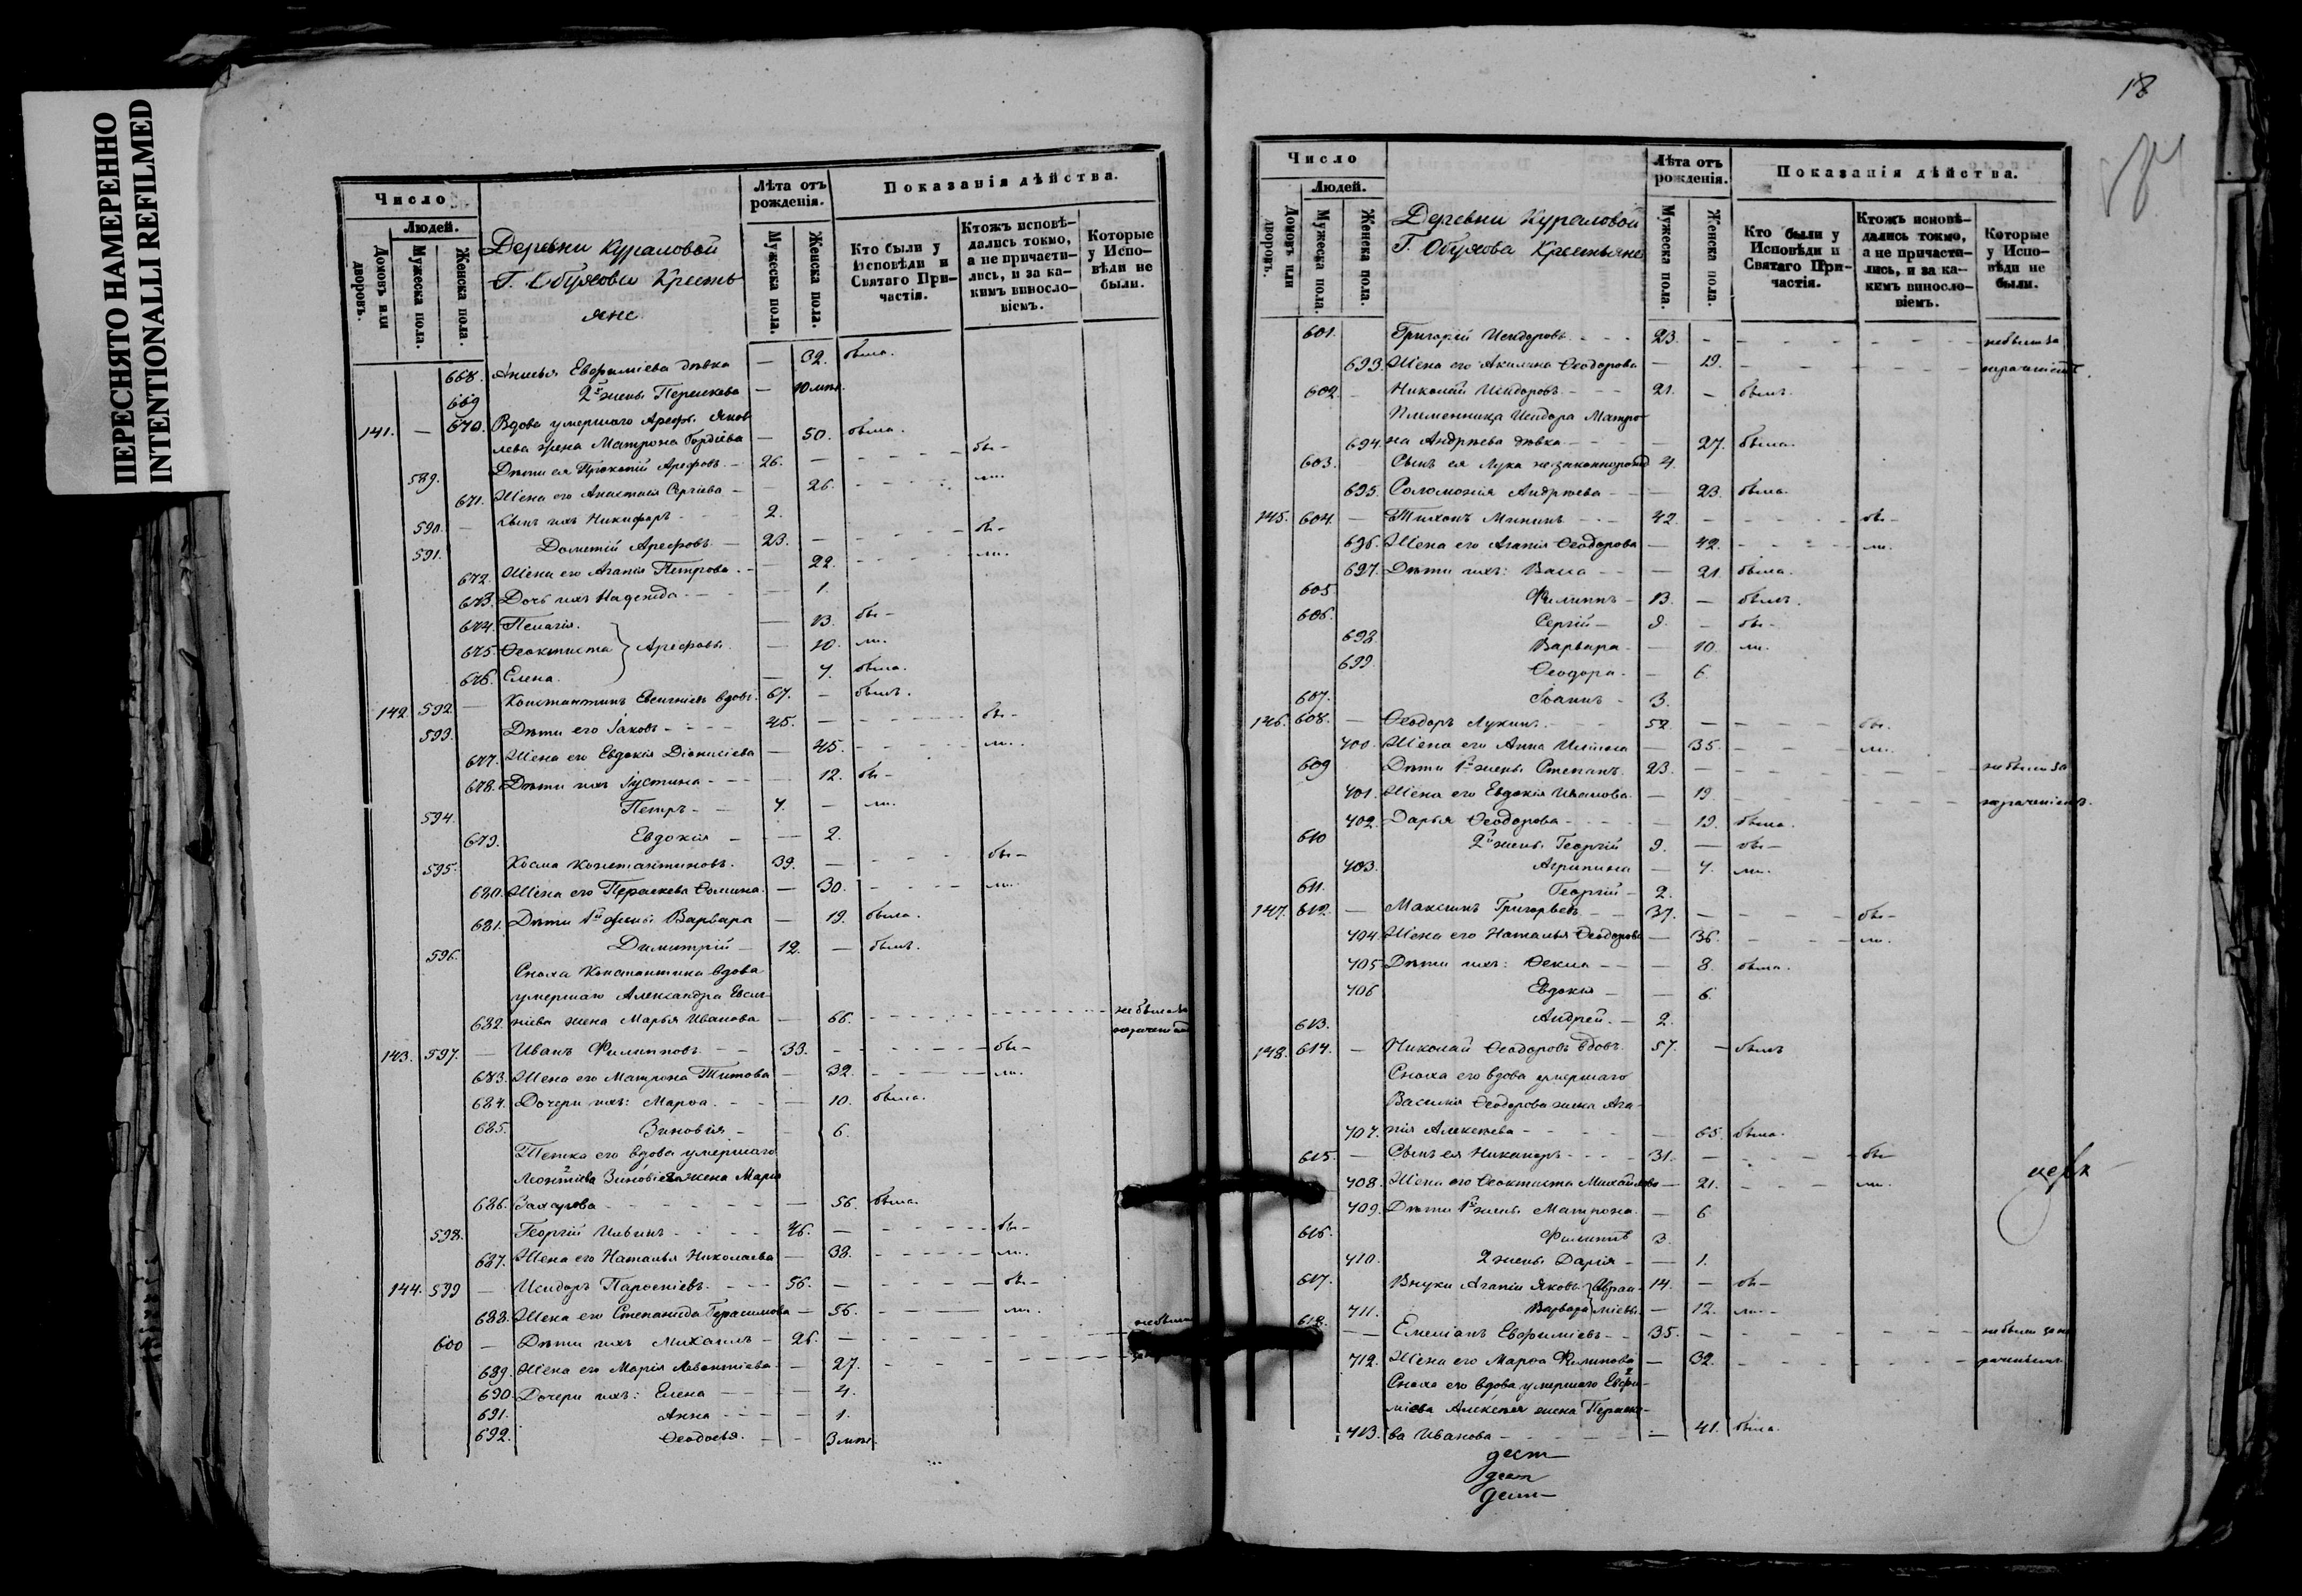 ПЕРЕСНЯТО НАМЕРЕННО
INTENTIONALLI REFILMED
Число
Людей.
Домовъ или дворовъ.
Мужеска пола.
Женска пола.
Деревни Кураловой
Г. Обухова Кресть
яне.
Лѣта отъ рожденія.
Мужеска пола.
Женска пола.
Показанія дѣйства.
Кто были у Исповѣди и Святаго Причастія.
Ктожъ исповѣдались токмо, а не причастились, и за какимъ винословіемъ.
Которые у Исповѣди не были.
668. Анисья Евфиміева дѣвка — 32. была.
669 2й жены Параскева — 10 мѣс.
141. — 670. Вдова умершаго Ареф. Яков
лева жена Матрона Гордіева — 50. была.
589. Дѣти ея Прокопій Арефовъ — 26. — бы-
671. Жена его Анастасія Сергіева — 26. ли.
590. — Сынъ ихъ Никифоръ 2.
591. Дометій Арефовъ — 23. — бы-
672. Жена его Агапія Петрова — 22. ли.
673. Дочь ихъ Надежда — 1.
674. Пелагія — 13. бы-
675. Феоктиста } Арефовы — 10. ли.
676. Елена — 7. была.
142. 592. — Константинъ Евсигніевъ вдовъ 67. — былъ.
593. Дѣти его Іаковъ 45. — бы-
677. Жена его Евдокія Діонисіева — 45. ли.
678. Дѣти ихъ Іустина — 12. бы-
594. Петръ 7. — ли.
679. Евдокія — 2.
595. Косма Константиновъ 39. — бы-
680. Жена его Параскева Фомина — 30. ли.
681. Дѣти 1й жены Варвара — 19. была.
596. Димитрій — 12. — былъ.
Сноха Константина вдова
умершаго Александра Евсиг-
682. ніева жена Марья Иванова — 66. не была за
нераченіемъ
143. 597. — Иванъ Филипповъ 33. — бы-
683. Жена его Матрона Титова — 32. ли.
684. Дочери ихъ: Марѳа — 10. была.
685. Зиновія — 6.
Тетка его вдова умершаго
Леонтіева Зиновія жена Марія
686. Захарова — 56. была.
598. Георгій Ильинъ 46. — бы-
687. Жена его Наталья Николаева — 38. ли.
144. 599 — Исидоръ Парѳеніевъ 56. — бы-
688. Жена его Степанида Герасимова — 56. ли.
600 — Дѣти ихъ Михаилъ 26. — не были
689. Жена его Марія Леонтіева — 27.
690. Дочери ихъ: Елена — 4.
691. Анна — 1.
692. Ѳеодосья — 3 мѣс.
18
Число
Людей.
Домовъ или дворовъ.
Мужеска пола.
Женска пола.
Деревни Кураловой
Г. Обухова Крестьяне
Лѣта отъ рожденія.
Мужеска пола.
Женска пола.
Показанія дѣйства.
Кто были у Исповѣди и Святаго Причастія.
Ктожъ исповѣдались токмо, а не причастились, и за какимъ винословіемъ.
Которые у Исповѣди не были.
601. Григорій Исидоровъ 23. — не были за
693. Жена его Акилина Ѳеодорова — 19. нераченіемъ.
602. — Николай Исидоровъ 21. — былъ.
Племянница Исидора Матро-
694. на Андреева дѣвка — 27. была.
603. Сынъ ея Лука незаконнорожд 4.
695. Соломонія Андреева — 23. была.
145. 604. — Тихонъ Мининъ 42. — бы-
696. Жена его Агапія Ѳеодорова — 42. ли.
697. Дѣти ихъ: Васса — 21. была.
605. Филиппъ 13. — былъ.
606. Сергій 9. — бы-
698. Варвара — 10. ли.
699. Ѳеодора — 6.
607. Іоаннъ 3.
146. 608. — Ѳеодоръ Лукинъ 52. — бы-
700. Жена его Анна Ильина — 35. ли.
609 Дѣти 1й жены Степанъ 23. — не были за
701. Жена его Евдокія Иванова — 19. нераченіемъ.
702. Дарья Ѳеодорова — 19. была.
610 2й жены Георгій 9. — бы-
703. Агрипина — 7. ли.
611. Георгій 2.
147. 612. — Максимъ Григорьевъ 37. — бы-
704. Жена его Наталья Ѳеодорова — 36. ли.
705 Дѣти ихъ: Ѳекла — 8. была.
706 Евдокія — 6.
613. Андрей 2.
148. 614. — Николай Ѳеодоровъ вдовъ 57. — былъ
Сноха его вдова умершаго
Василія Ѳеодорова жена Ага-
707. пія Алексѣева — 65. была.
615. — Сынъ ея Никаноръ 31. — бы-
708. Жена его Ѳеоктиста Михайлова — 21. ли.
709. Дѣти 1й жены Матрона — 6.
616. Филиппъ 3.
710. 2 жены Дарія — 1.
617. Внуки Агапіи Яковъ } Авраа- 14. — бы-
711. Варвара } міевы — 12. ли.
618. — Емеліанъ Евфиміевъ 35. — не были за не
712. Жена его Марѳа Филипова — 32. раченіемъ
Сноха его вдова умершаго Евфи-
міева Алексѣя жена Параске-
713. ва Иванова — 41. была.